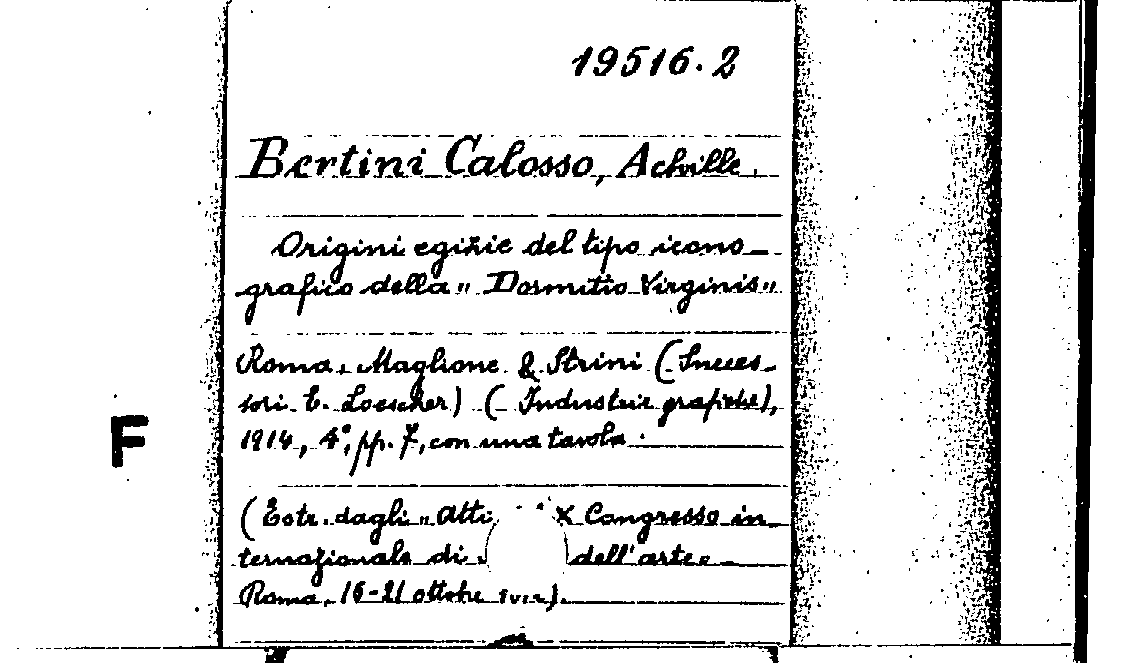 19516.2
Bertini Calosso, Achille.
Origini egizie del tipo icono-
grafico della "Dormitio Virginis"
Roma, Maglione & Strini (Succes-
sori E. Loescher) (Industrie grafiche),
F
1914, 4°, pp. 7, con una tavola.
(Estr. dagli "Atti X Congresso in-
ternazionale di dell'arte"
Roma, 16-21 ottobre